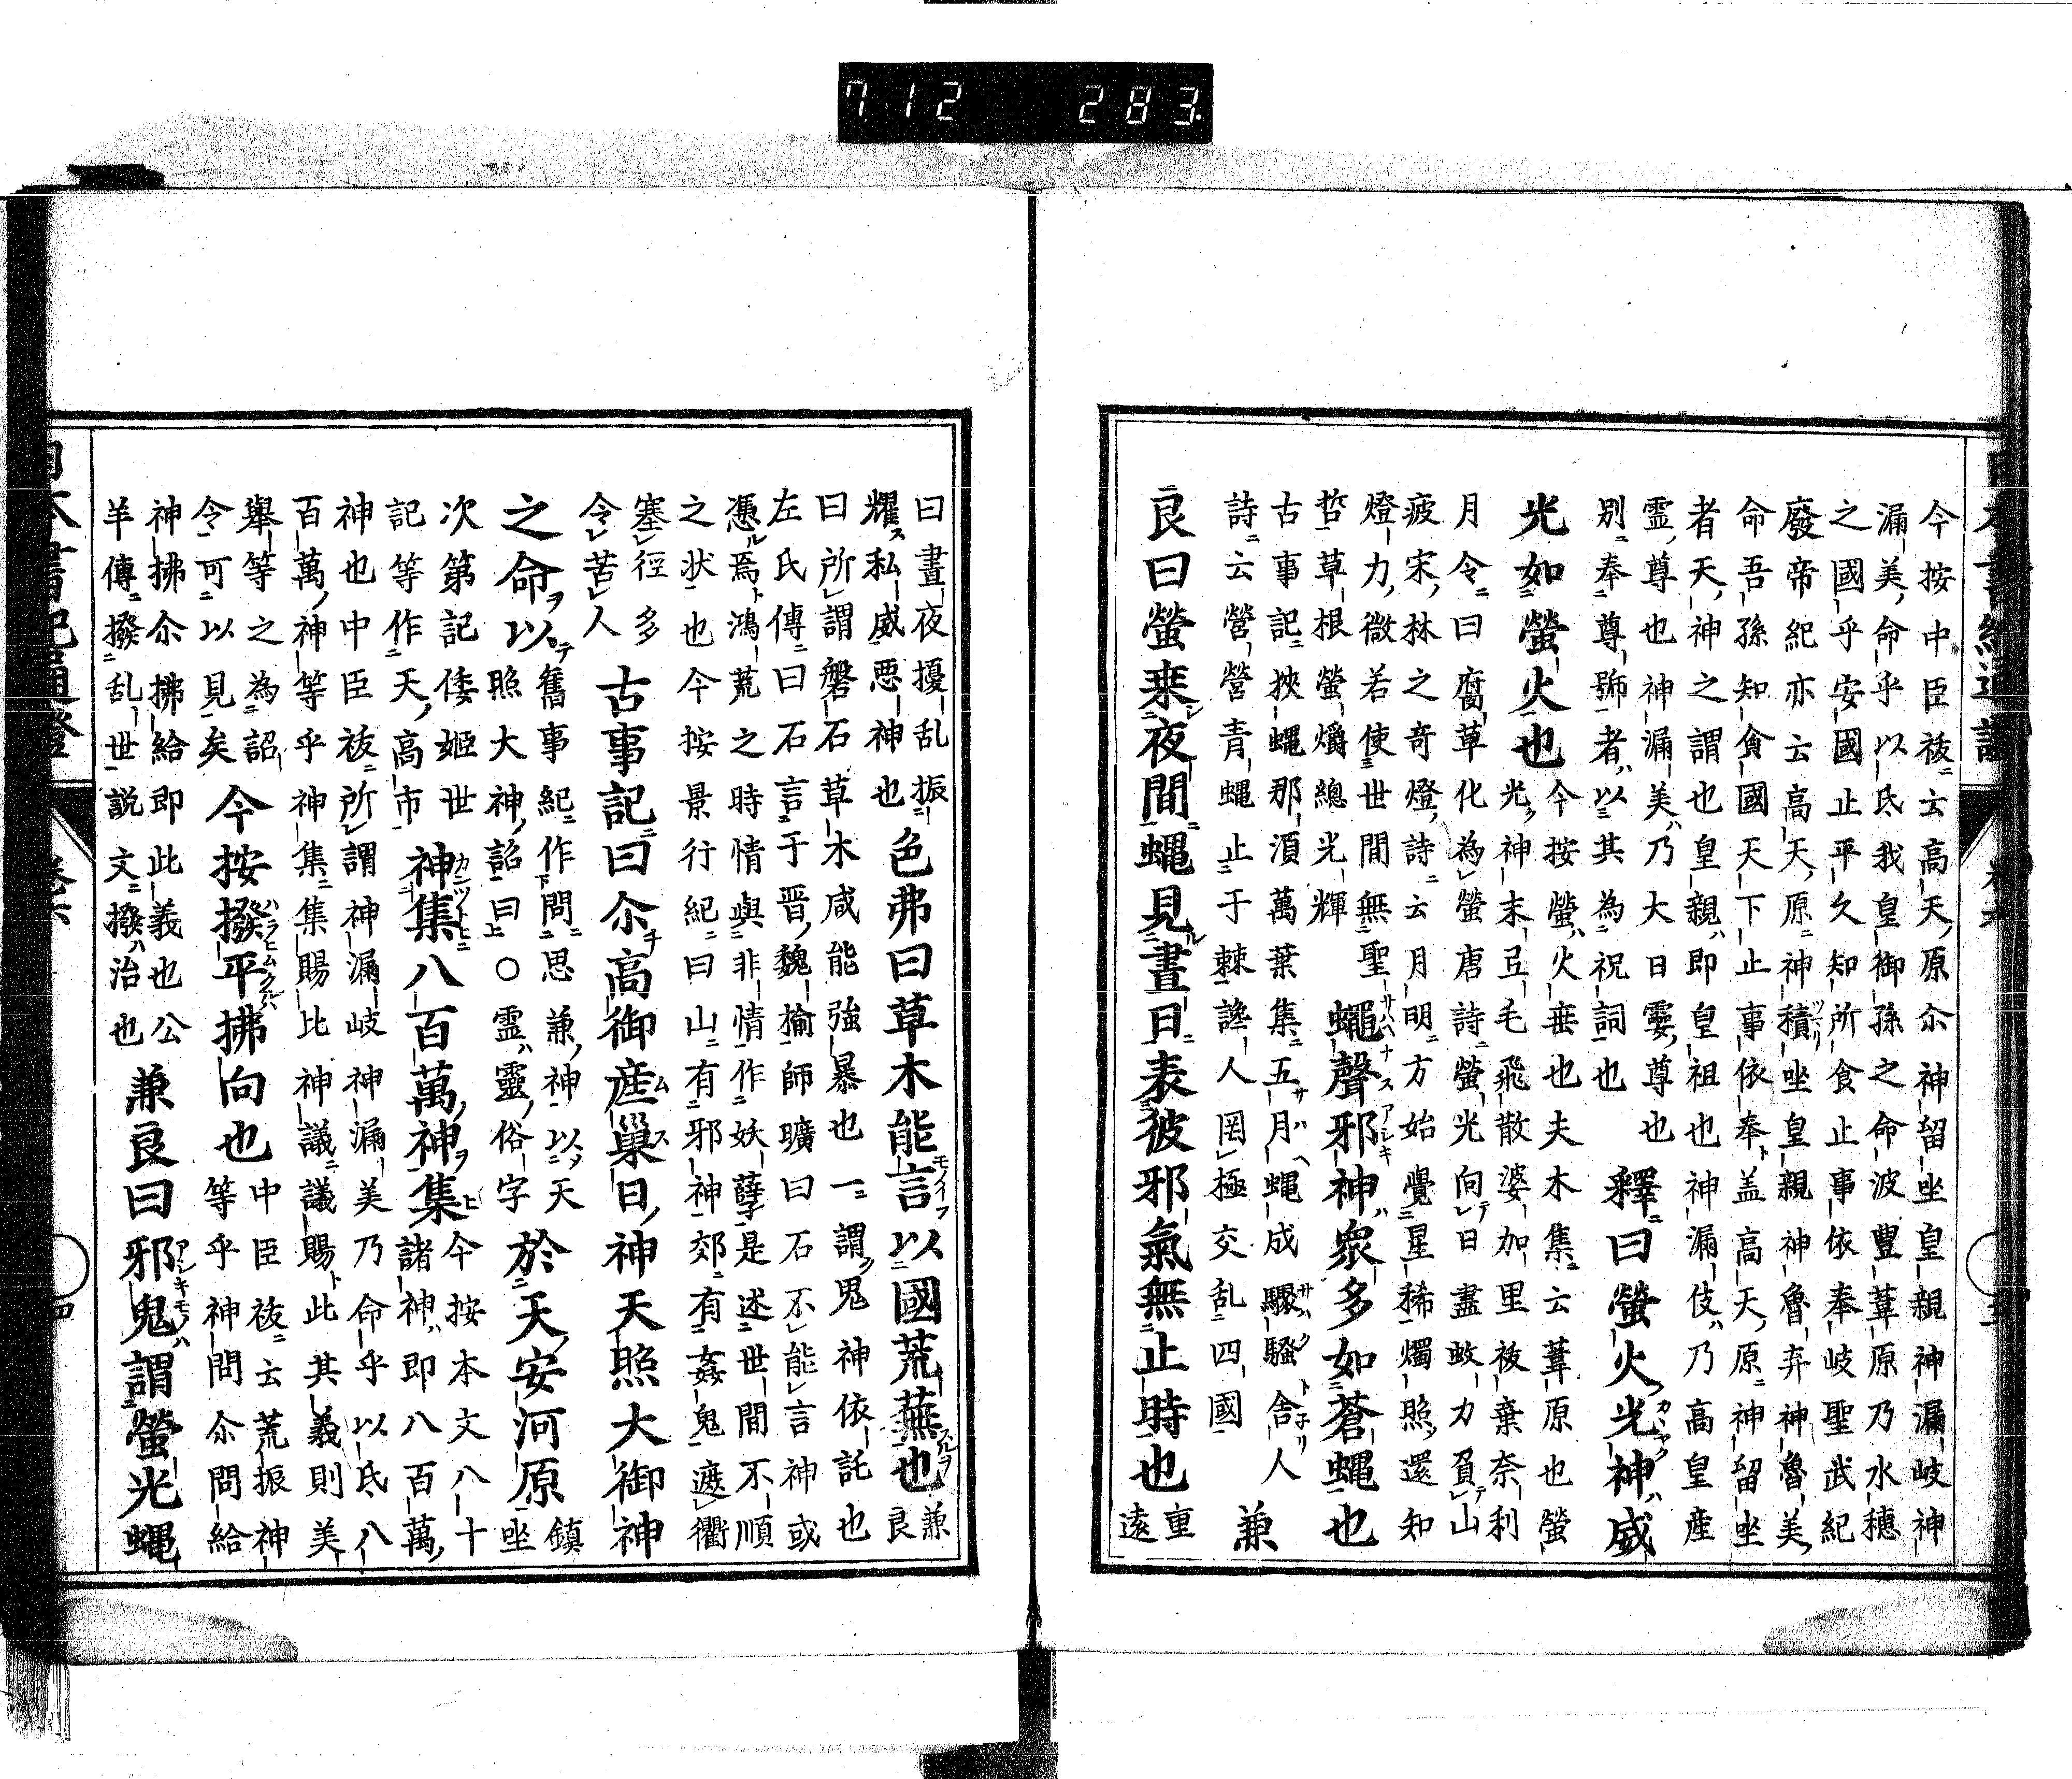 712 283
今按中臣祓云高天原尒神留坐皇親神漏岐神
漏美命乎以氐我皇御孫之命波豊葦原乃水穗
之國乎安國止平久知所食止事依奉岐聖武紀
廢帝紀亦云高天原神積坐皇親神魯弃神魯美
命吾孫知食國天下止事依奉盖高天原神留坐
者天神之謂也皇親即皇祖也神漏伎乃高皇産
霊尊也神漏美乃大日孁尊也
別奉尊號者以其為祝詞也
釋曰螢火光神威
光如螢火也
今按螢火垂也夫木集云葦原也螢
光神末豆毛飛散婆加里祓棄奈利
月令曰腐草化為螢唐詩螢光向日盡蚊力負山
疲宋林之奇燈詩云月明方始覺星稀燭照還知
燈力微若使世間無聖
哲草根螢爝總光輝
蠅聲邪神衆多如蒼蠅也
古事記挾蠅那湏萬葉集五月蠅成驟騷舎人
詩云營營青蠅止于棘讒人罔極交乱四國
兼
良曰螢乗夜間蠅見晝日表彼邪氣無止時也
重
遠
曰晝夜擾乱振
耀私威悪神也
色弗曰草木能言以國荒蕪也
兼
良
曰所謂磐石草木咸能強暴也一謂鬼神依託也
左氏傳曰石言于晋魏揄師曠曰石不能言神或
憑焉鴻荒之時情與非情作妖孽是述世間不順
之状也今按景行紀曰山有邪神郊有姦鬼遮衢
塞徑多
令苦人
古事記曰尒高御産巣日神天照大御神
之命以
舊事紀作問思兼神以天
照大神詔曰○霊靈俗字
於天安河原
鎮
坐
次第記倭姫世
記等作天高市
神集八百萬神集
今按本文八十
諸神即八百萬
神也中臣祓所謂神漏岐神漏美乃命乎以氐八
百萬神等乎神集集賜比神議議賜此其義則美
舉等之為詔
令可以見矣
今按撥平拂向也
中臣祓云荒振神
等乎神問尒問給
神拂尒拂給即此義也公
羊傳撥乱世説文撥治也
兼良曰邪鬼謂螢光蠅
日本書紀通證 卷六 四